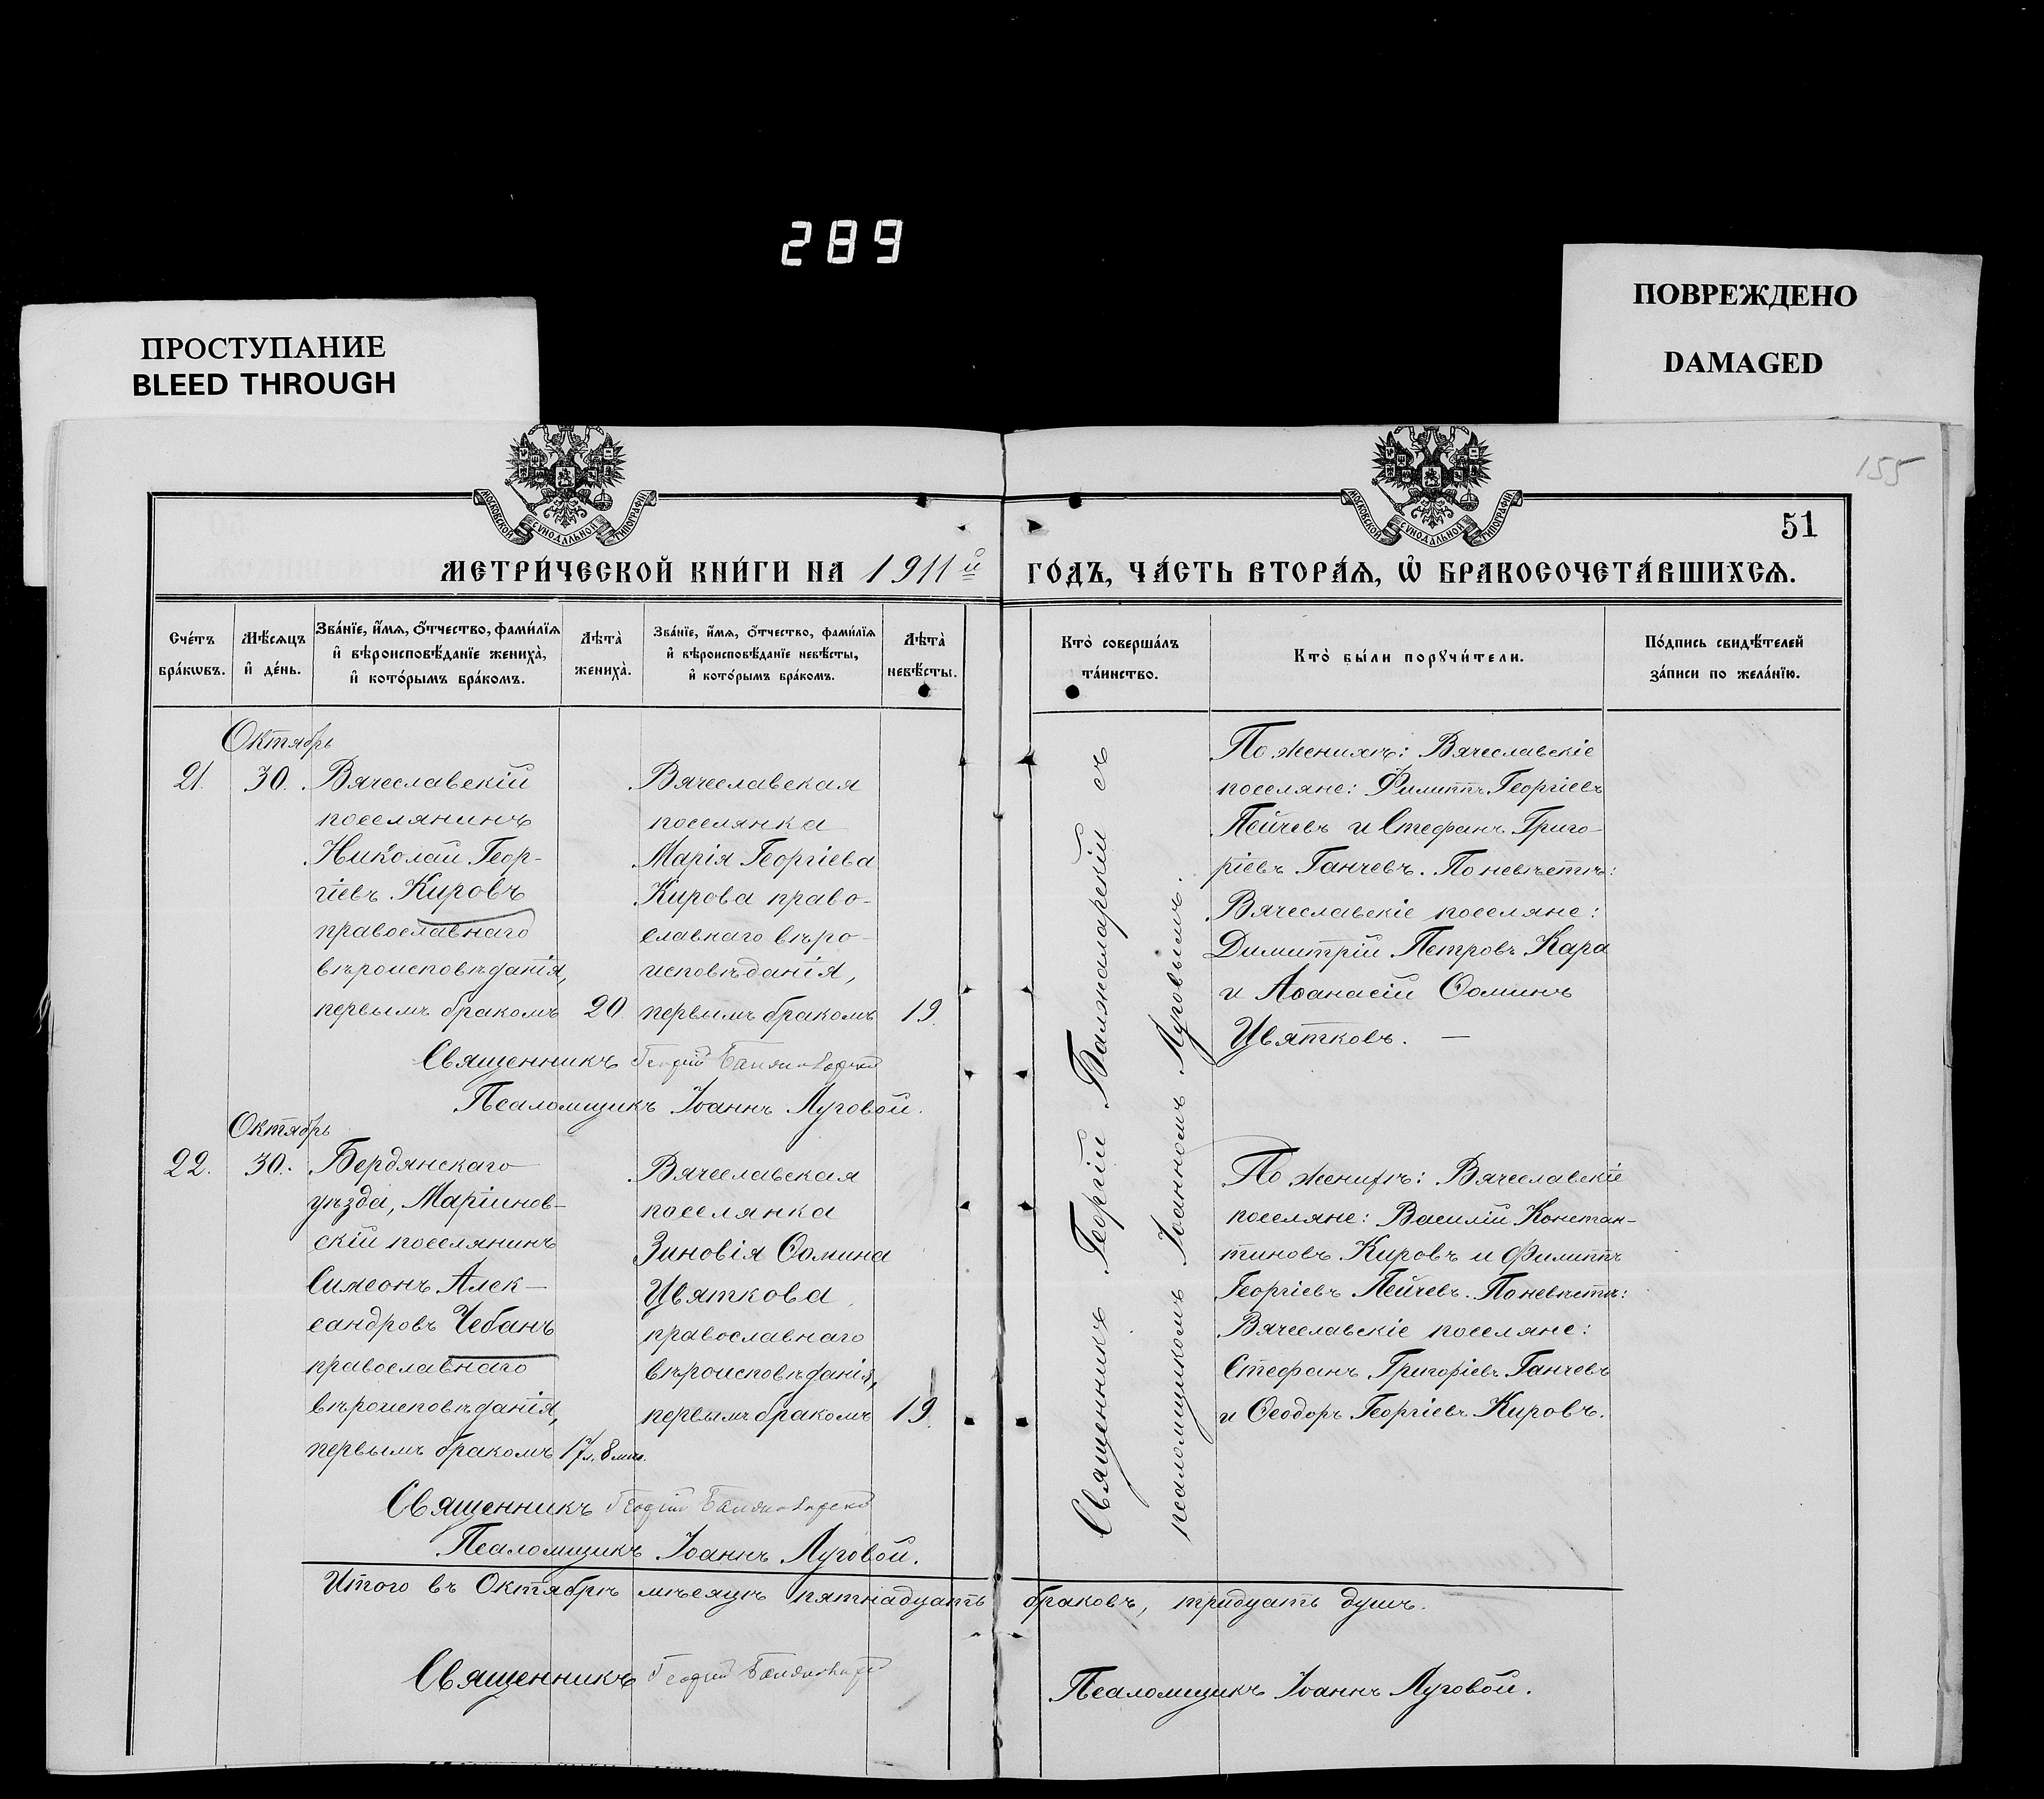 289
ПРОСТУПАНИЕ
BLEED THROUGH
ПОВРЕЖДЕНО
DAMAGED
155
МОСКОВСКОЙ СѴНОДАЛЬНОЙ ТИПОГРАФІИ
МОСКОВСКОЙ СѴНОДАЛЬНОЙ ТИПОГРАФІИ
51
МЕТРИ́ЧЕСКОЙ КНИ́ГИ НА 1911й
ГО́ДЪ, ЧА́СТЬ ВТОРА́Ѧ, Ѡ҆ БРАКОСОЧЕТА́ВШИХСѦ.
Сче́тъ
бра́кѡвъ.
Мѣ́сѧцъ
и҆ де́нь.
Зва́нїе, и҆́мѧ, ѻ҆́тчество, фами́лїѧ
и҆ вѣроисповѣ́данїе жениха̀,
и҆ кото́рымъ бра́комъ.
Лѣта̀
жениха̀.
Зва́нїе, и҆́мѧ, ѻ҆́тчество, фами́лїѧ
и҆ вѣроисповѣ́данїе невѣ́сты,
и҆ кото́рымъ бра́комъ.
Лѣта̀
невѣ́сты.
Кто̀ соверша́лъ
та́инство.
Кто̀ бы́ли порꙋчи́тели.
По́дпись свидѣ́телей
за́писи по жела́нїю.
Октябрь
21. 30.
Вячеславскій
поселянинъ
Николай Геор-
гіевъ Кировъ
православнаго
вѣроисповѣданія,
первымъ бракомъ
20
Вячеславская
поселянка
Марія Георгіева
Кирова право-
славнаго вѣро-
исповѣданія,
первымъ бракомъ
19.
Священникъ Георгій
Псаломщикъ Іоаннъ Луговой.
Священникъ Георгій съ
псаломщикомъ Іоанномъ Луговымъ.
По женихѣ: Вячеславскіе
поселяне: Филиппъ Георгіевъ
Пейчевъ и Стефанъ Григо-
ріевъ Ганчевъ. По невѣстѣ:
Вячеславскіе поселяне:
Димитрій Петровъ Кара
и Аѳанасій Ѳоминъ
Цвятковъ. —
Октябрь
22. 30.
Бердянскаго
уѣзда, Маріинов-
скій поселянинъ
Симеонъ Алек-
сандровъ Чебанъ
православнаго
вѣроисповѣданія,
первымъ бракомъ
17 л. 8 мѣс.
Вячеславская
поселянка
Зиновія Ѳомина
Цвяткова
православнаго
вѣроисповѣданія,
первымъ бракомъ
19.
По женихѣ: Вячеславскіе
поселяне: Василій Констан-
тиновъ Кировъ и Филиппъ
Георгіевъ Пейчевъ. По невѣстѣ:
Вячеславскіе поселяне:
Стефанъ Григоріевъ Ганчевъ
и Ѳеодоръ Георгіевъ Кировъ.
Священникъ Георгій
Псаломщикъ Іоаннъ Луговой.
Итого въ Октябрѣ мѣсяцѣ пятнадцать браковъ, тридцать душъ.
Священникъ Георгій
Псаломщикъ Іоаннъ Луговой.